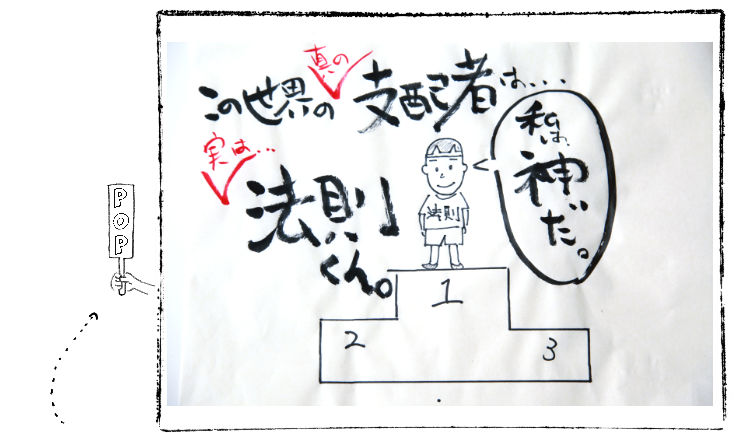 この世界の真の支配者は...
実は...
法則
くん。
私は、
神
だ。
法則
1
2
3
POP